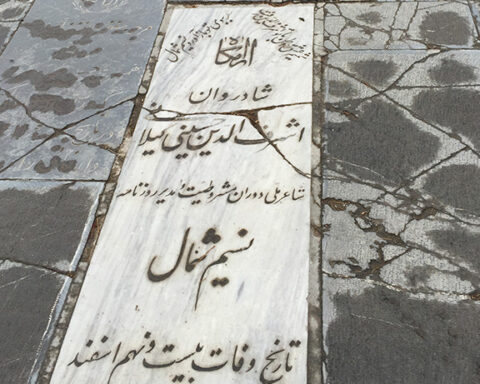 آرامگاه
شادروان
اشرف الدین حسینی گیلا
شاعر ملی دوران مشروطیت و مدیر روزنامه
نسیم شمال
تاریخ وفات بیست و نهم اسفند